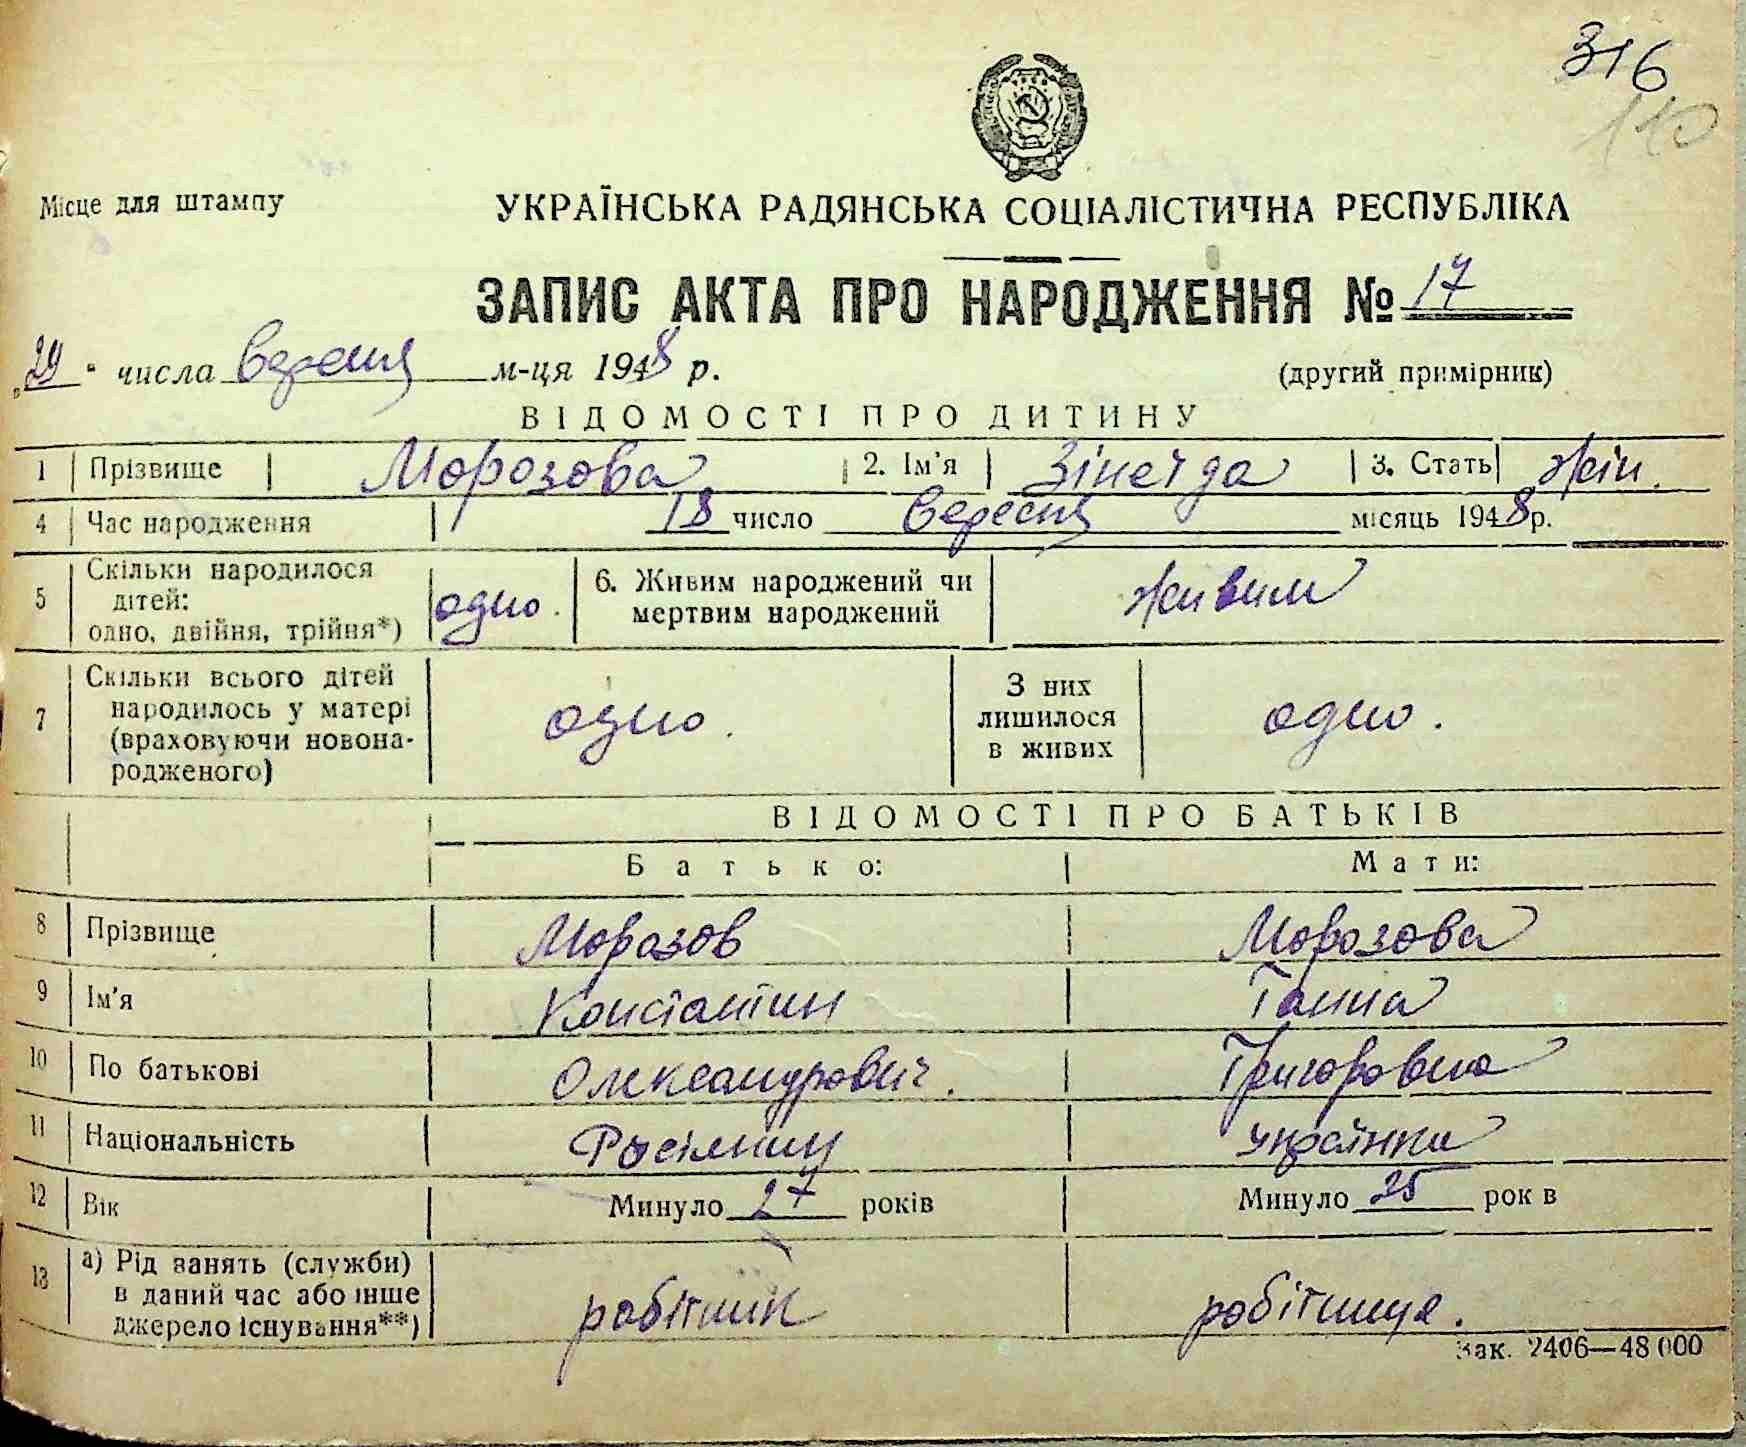 316
110
Місце для штампу
УКРАЇНСЬКА РАДЯНСЬКА СОЦІАЛІСТИЧНА РЕСПУБЛІКА
ЗАПИС АКТА ПРО НАРОДЖЕННЯ № 17
„29" числа вересня м-ця 1948 р. (другий примірник)
ВІДОМОСТІ ПРО ДИТИНУ
1 Прізвище Морозова 2. Ім'я Зінеїда 3. Стать жін.
4 Час народження 18 число вересня місяць 1948р.
5 Скільки народилося дітей: одно, двійня, трійня*) одно. 6. Живим народжений чи мертвим народжений живим
7 Скільки всього дітей народилось у матері (враховуючи новона-родженого) одно. З них лишилося в живих одно.
ВІДОМОСТІ ПРО БАТЬКІВ
Батько: Мати:
8 Прізвище Морозов Морозова
9 Ім'я Константин Ганна
10 По батькові Олександрович. Григоровна
11 Національність Росіянин українка
12 Вік Минуло 27 років Минуло 25 рок в
13 а) Рід занять (служби) в даний час або інше джерело існування**) робітник робітниця.
Зак. 2406—48 000